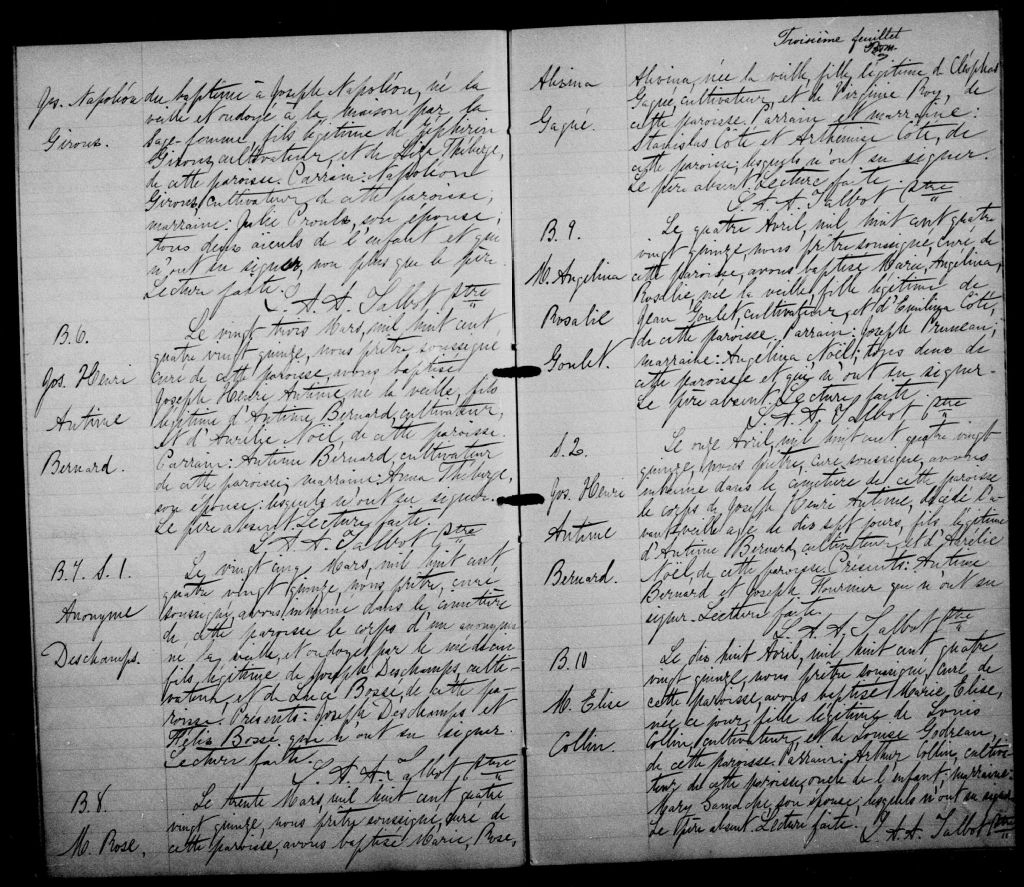 Jos. Napoléon
Giroux.
du baptême à Joseph Napoléon, né la
veille et ondoyé à la maison par la
sage-femme, fils légitime de Zéphirin
Giroux, cultivateur, et de Théberge,
de cette paroisse. Parrain: Napoléon
Giroux, cultivateur, de cette paroisse;
marraine: Julie Proulx, son épouse;
tous deux aieuls de l'enfant et qui
n'ont su signer, non plus que le père.
Lecture faite.
L. A. A. Talbot Ptre
B. 6.
Jos. Henri
Antime
Bernard.
Le vingt trois Mars, mil huit cent
quatre vingt quinze, nous prêtre, soussigné
curé de cette paroisse, avons baptisé
Joseph Henri Antime, né la veille, fils
légitime d'Antime Bernard, cultivateur,
et d'Aurélie Noël, de cette paroisse.
Parrain: Antime Bernard, cultivateur
de cette paroisse; marraine: Anna Théberge,
son épouse: lesquels n'ont su signer.
Le père absent. Lecture faite.
L. A. A. Talbot Ptre
B. 7. S. 1.
Anonyme
Deschamps.
Le vingt cinq Mars, mil huit cent,
quatre vingt quinze, nous prêtre, curé
soussigné, avons inhumé dans le cimetière
de cette paroisse le corps d'un anonyme
né la veille, et ondoyé par le médecin
fils légitime de Joseph Deschamps, culti-
vateur, et de Luce Bossé, de cette pa-
roisse. Présents: Joseph Deschamps et
Bossé qui n'ont su signer.
Lecture faite.
L. A. A. Talbot, Ptre
B. 8.
M. Rose,
Le trente Mars, mil huit cent quatre
vingt quinze, nous prêtre soussigné, curé de
cette paroisse, avons baptisé Marie, Rose,
Troisième feuillet
Alivina
Gagné.
Alivina, née la veille, fille légitime de Cléophas
Gagné, cultivateur, et de Virginie Roy, de
cette paroisse. Parrain et marraine:
Stanislas Côté et Arthémise Côté, de
cette paroisse; lesquels n'ont su signer.
Le père absent. Lecture faite.
L. A. A. Talbot Ptre
B. 9.
M. Angelina
Rosalie
Goulet.
Le quatre Avril, mil huit cent quatre
vingt quinze, nous prêtre soussigné, curé de
cette paroisse, avons baptisé Marie, Angelina,
Rosalie, née la veille, fille légitime de
Jean Goulet, cultivateur, et d'Emilina Côté,
de cette paroisse. Parrain: Joseph Pruneau;
marraine: Angelina Noël; tous deux de
cette paroisse et qui n'ont su signer.
Le père absent. Lecture faite.
L. A. A. Talbot Ptre
S. 2.
Jos. Henri
Antime
Bernard.
Le onze Avril, mil huit cent quatre vingt
quinze, nous prêtre, curé soussigné, avons
inhumé dans le cimetière de cette paroisse
le corps de Joseph Henri Antime, décédé l'a-
vant veille agé de dix sept jours, fils légitime
d'Antime Bernard, cultivateur, et d'Aurélie
Noël, de cette paroisse. Présents: Antime
Bernard et Joseph Fournier qui n'ont su
signer. Lecture faite.
L. A. A. Talbot Ptre
B. 10
M. Elise
Collin.
Le dix huit Avril, mil huit cent quatre
vingt quinze, nous prêtre soussigné, curé de
cette paroisse, avons baptisé Marie, Elise,
née ce jour, fille légitime de Louis
Collin, cultivateur, et de Louise Godreau,
de cette paroisse. Parrain: Arthur Collin, cultiva-
teur de cette paroisse, oncle de l'enfant: marraine:
Mary son épouse; lesquels n'ont su signer
Le père absent. Lecture faite. L. A. A. Talbot Ptre